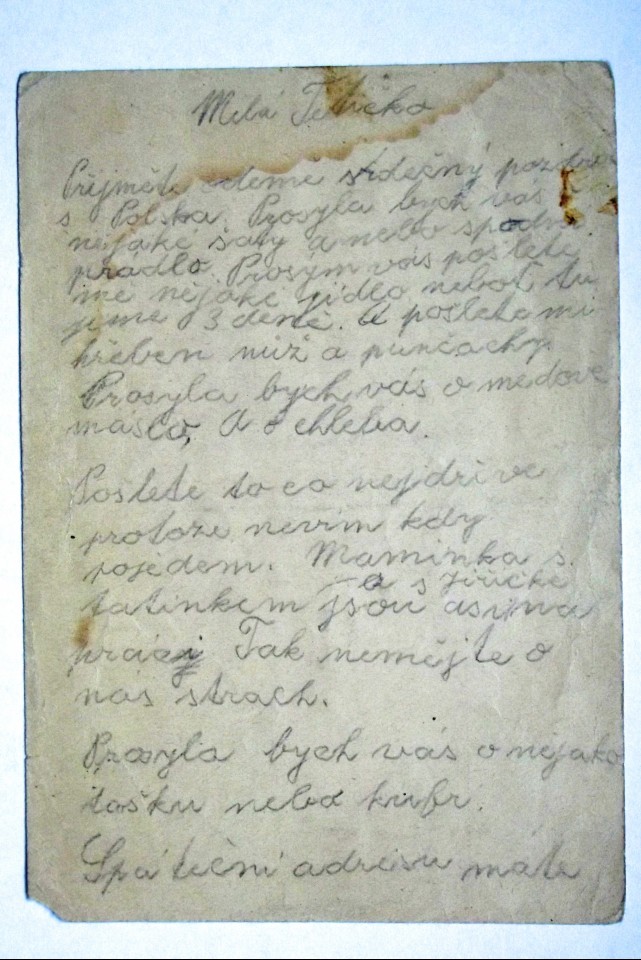 Milá Tetičko
Přijměte odemě srdečný pozdrav
s Polska. Prosyla bych vás
nějáke šaty a nebo spodní
prádlo. Prosým vás poslete
mě nějáke jídlo neboť tu
jsme 3 deně. A posletemi
hřeben nuž a punčachy.
Prosyla bych vás o medové
máslo, A o chleba.
Poslete to co nejdřive
protoze nevím kdy
pojedem. Maminka s
tatínkem a s Jiříčke
jsou asi na
práci Tak nemějte o
nás strach.
Prosyla bych vás o nejako
tašku nebo kufr.
Spáteční adresu máte